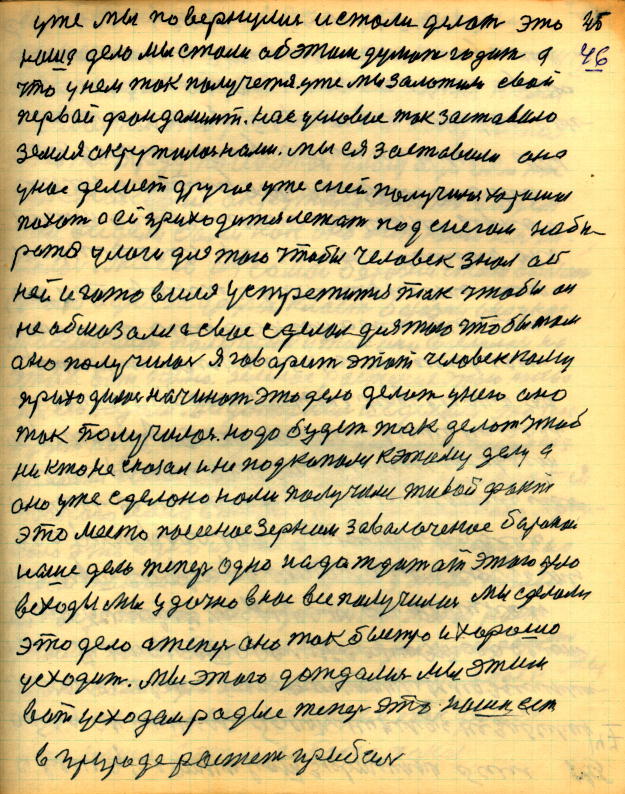 уже мы повернулия и стали делат это 25
наше дело мы стали об этом думат годит а 46
что у нем так получетя уже мы заложили свой
первай фондамент. нас условие так заставило
земля окружилоя нами. мы ея заставили она
у нас делает другое уже с ней получилоя харошии
пахот а ей приходится лежат под снегом наби-
рат влаги для того чтобы человек знал об
ней и готовился устретит так чтобы он
не обмозал а свое сделал для того чтобы там
ано получилоя я говарит этот человек кому
приходилоя начинат это дело делат у него ано
так получилоя. надо будет так делат чтоб
никто не сказал и не подкопали к этому делу а
ано уже сделоно нами получили живой факт
это место посеное зерном заволоченое баронои
наше дело тепер одно надо ждат от этого дело
всходы мы удачно в нас все получилоя мы сделали
это дело а тепер ано так быстро и харошо
усходит. мы этого дождалия мы этим
вот усходам радые тепер это
в природе растет прибыля